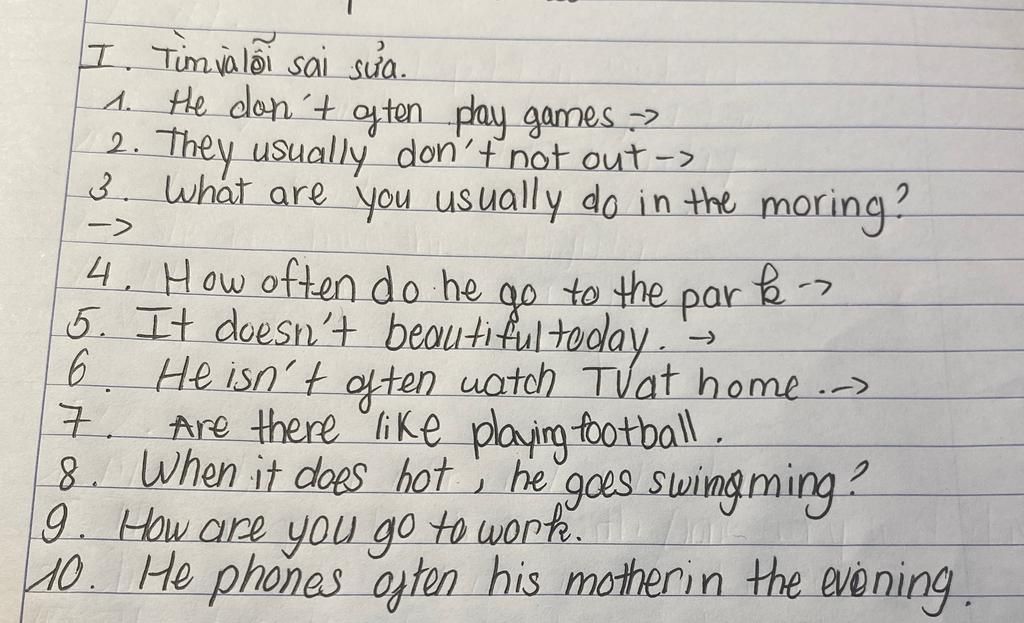 I. Tìm và lỗi sai sửa.
1. He don't often play games ->
2. They usually don't not out ->
3. What are you usually do in the moring?
->
4. How often do he go to the park ->
5. It doesn't beautiful today. ->
6. He isn't often watch TV at home. ->
7. Are there like playing football.
8. When it does hot, he goes swingming?
9. How are you go to work.
10. He phones often his mother in the evening.